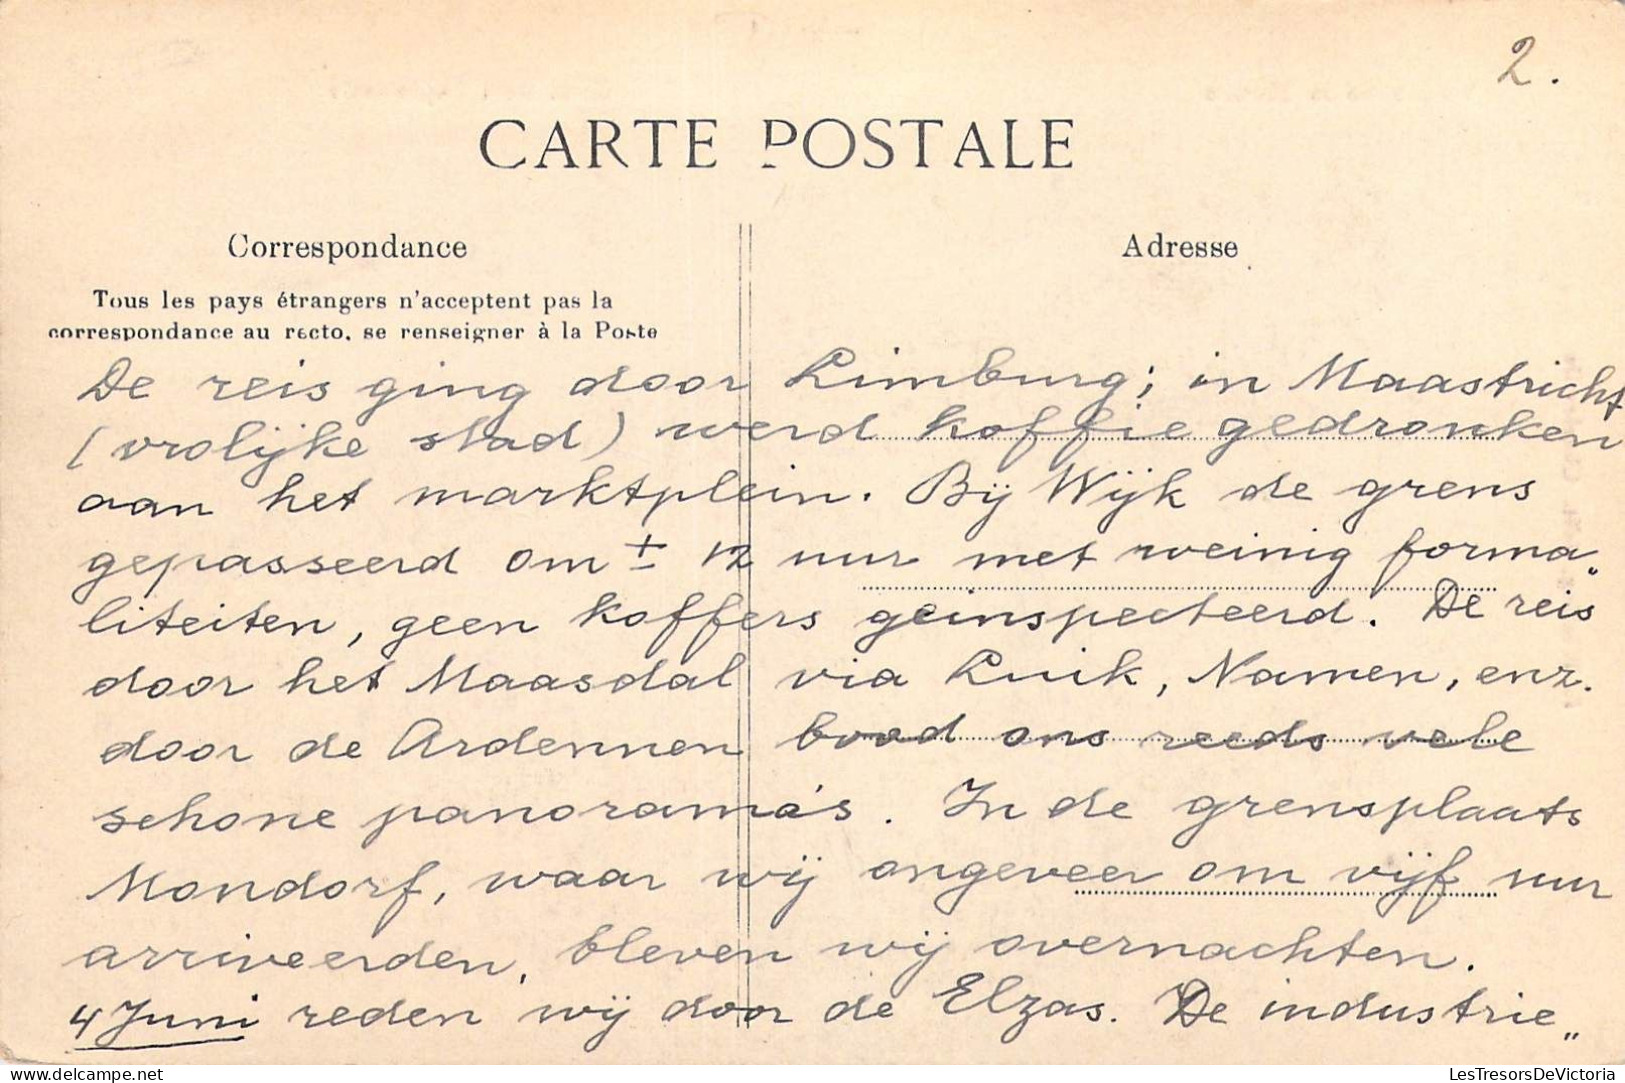 2.
CARTE POSTALE
Correspondance
Adresse
Tous les pays étrangers n'acceptent pas la
correspondance au recto, se renseigner à la Poste
De reis ging door Limburg; in Maastricht
(vrolijke stad) werd koffie gedronken
aan het marktplein. Bij Wijk de grens
gepasseerd om ± 12 uur met weinig forma„
liteiten, geen koffers geinspecteerd. De reis
door het Maasdal via Luik, Namen, enz.
door de Ardennen bood ons reeds vele
schone panorama's. In de grensplaats
Mondorf, waar wij ongeveer om vijf uur
arriveerden, bleven wij overnachten.
4 Juni reden wij door de Elzas. De industrie„
LesTresorsDeVictoria
www.delcampe.net